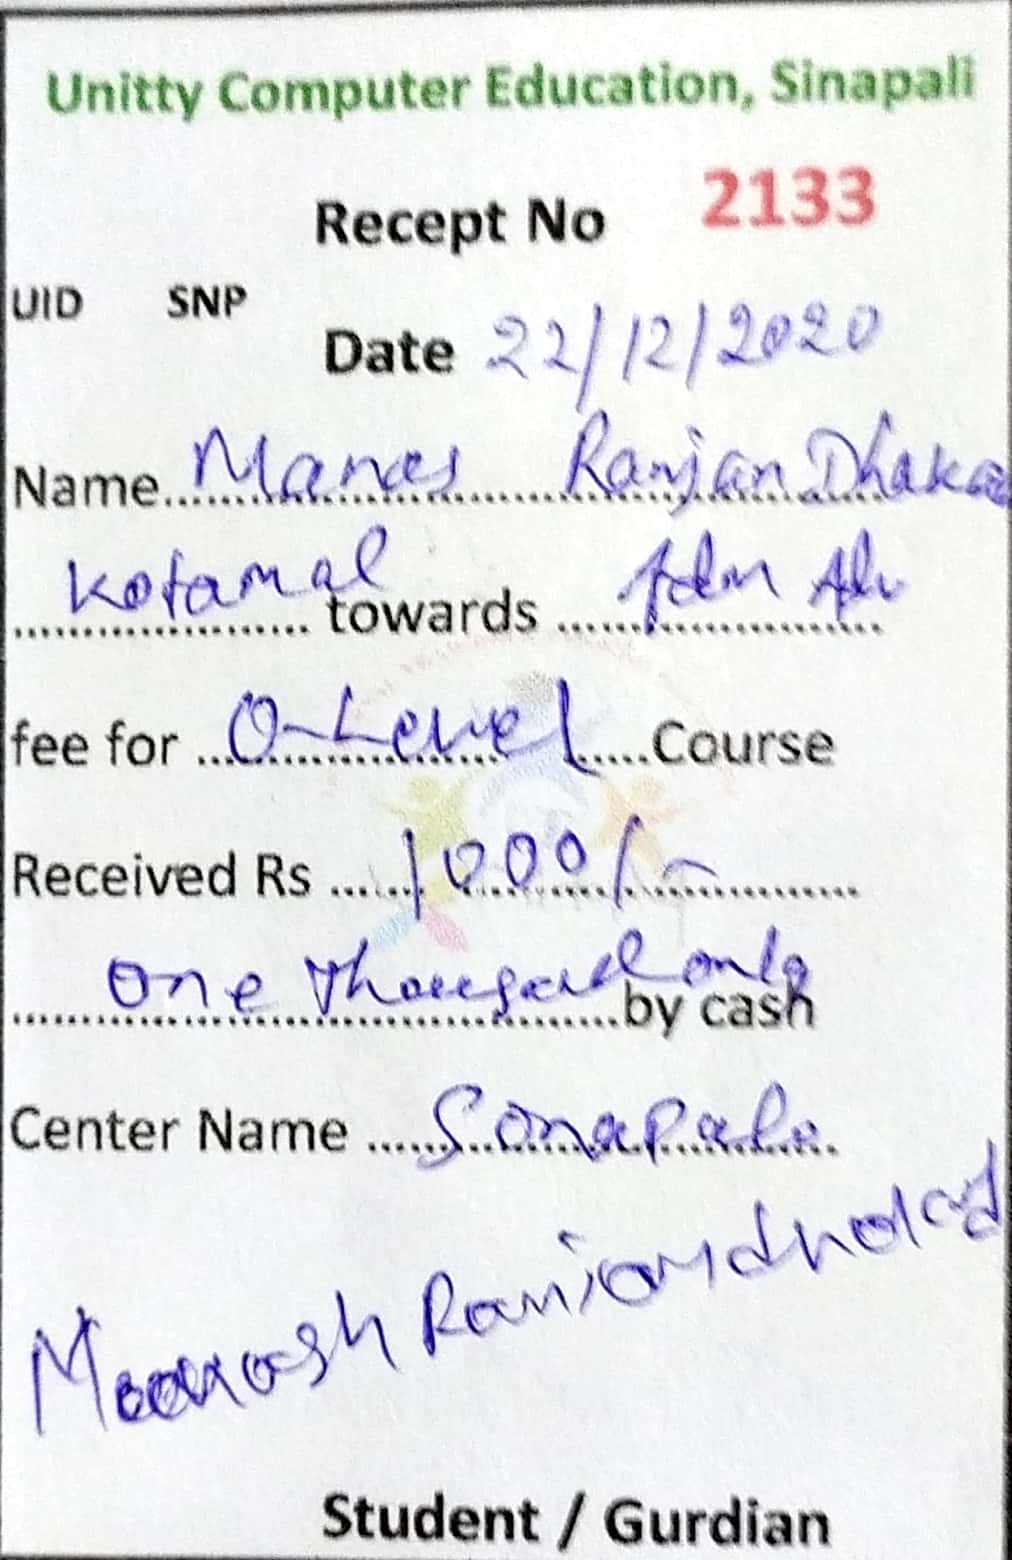 Unitty Computer Education, Sinapali
Recept No 2133
UID SNP
Date 22/12/2020
Name....Manas Ranjan Dhaka
Kotamal towards ........ Adm
fee for ...O-Level.....Course
Received Rs ....1000/-............
One thousand only by cash
Center Name ......Sinapali.
Ranjan
Student / Gurdian